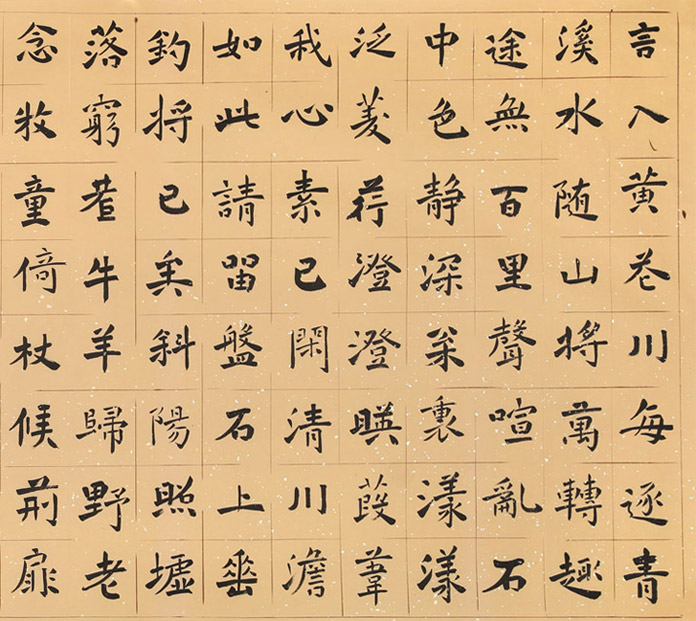 言入黄花川每逐青
溪水随山將萬轉趣
途無百里聲喧亂石
中色静深枀裏漾漾
泛菱荇澄澄暎葭葦
我心素已閑清川澹
如此請留盤石上垂
釣将已矣斜陽照墟
落窮巷牛羊歸野老
念牧童倚杖候荆扉